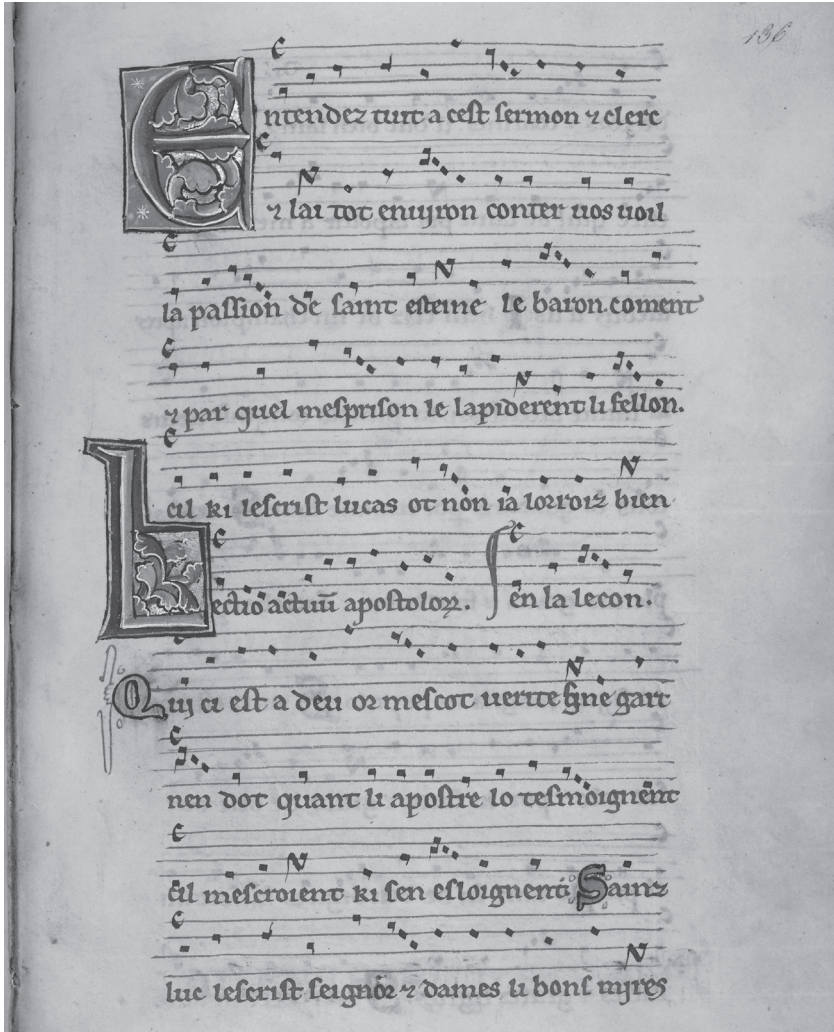 136
Entendez tuit a cest sermon ⁊ clerc
⁊ lai tot enuyron conter uos uoil
la passion de saint esteine le baron. coment
⁊ par quel mesprison le lapiderent li fellon.
cil ki lescrist lucas ot non ia lorroiz bien
Lectio actuū apostoloꝝ. en la lecon.
Qui ci est a deu or mescot uerite ne gart
nen dot quant li apostre lo tesmoignent
cil mescroient ki sen esloignent Sainz
luc lescrist seignor ⁊ dames li bons myres